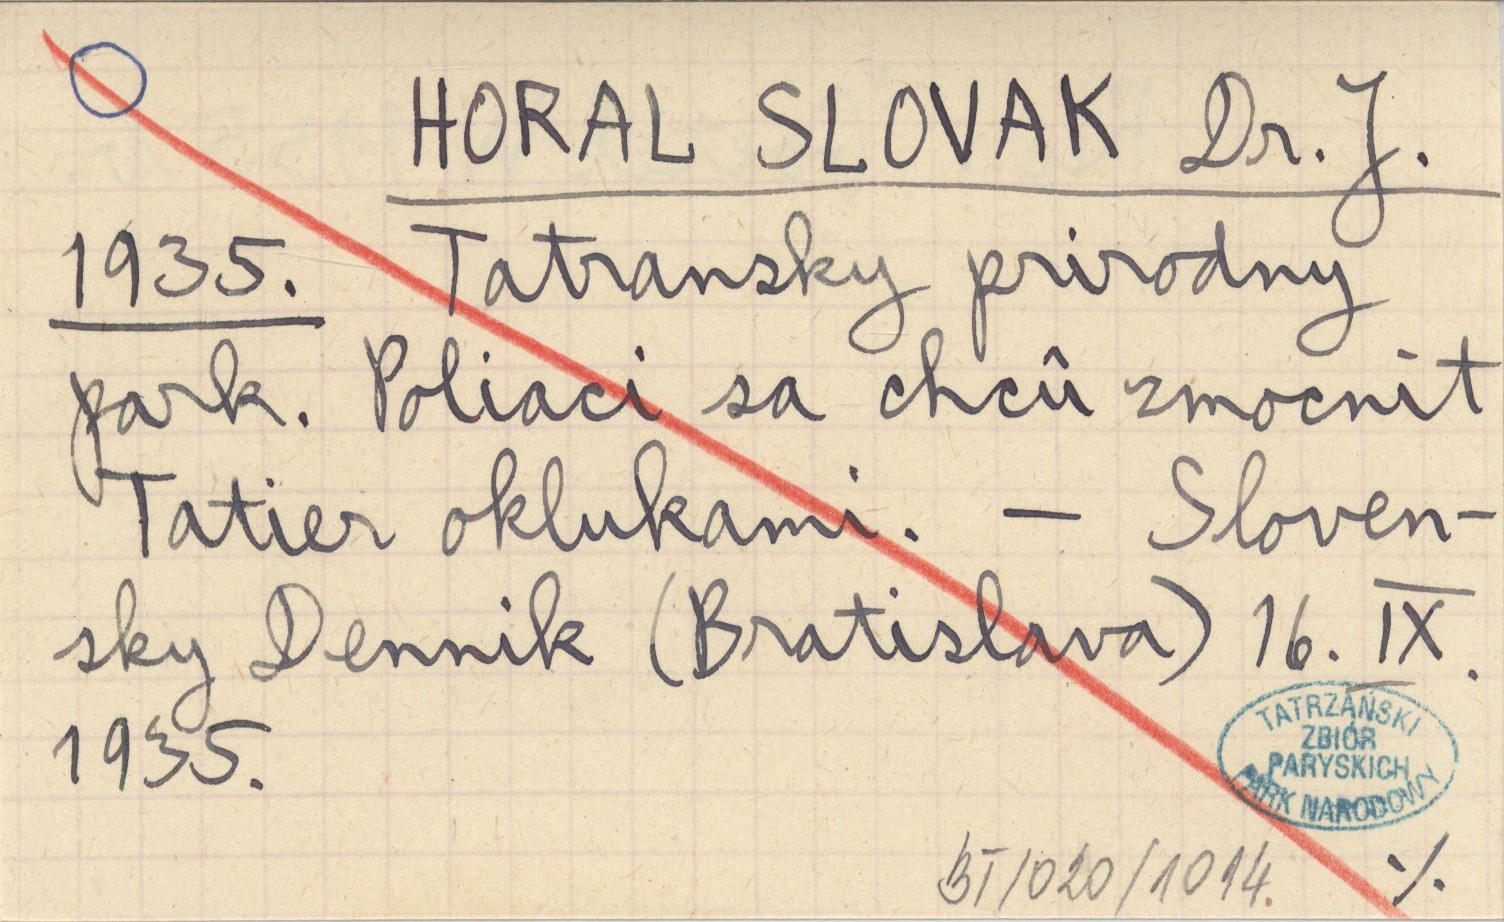 HORAL SLOVAK Dr. J.
1935. Tatransky prirodny
park. Poliaci sa chcû zmocnit
Tatier oklukami. — Sloven-
sky Dennik (Bratislava) 16. IX.
1935.
TATRZAŃSKI
ZBIÓR
PARYSKICH
PARK NARODOWY
BT/020/1014.
·/.